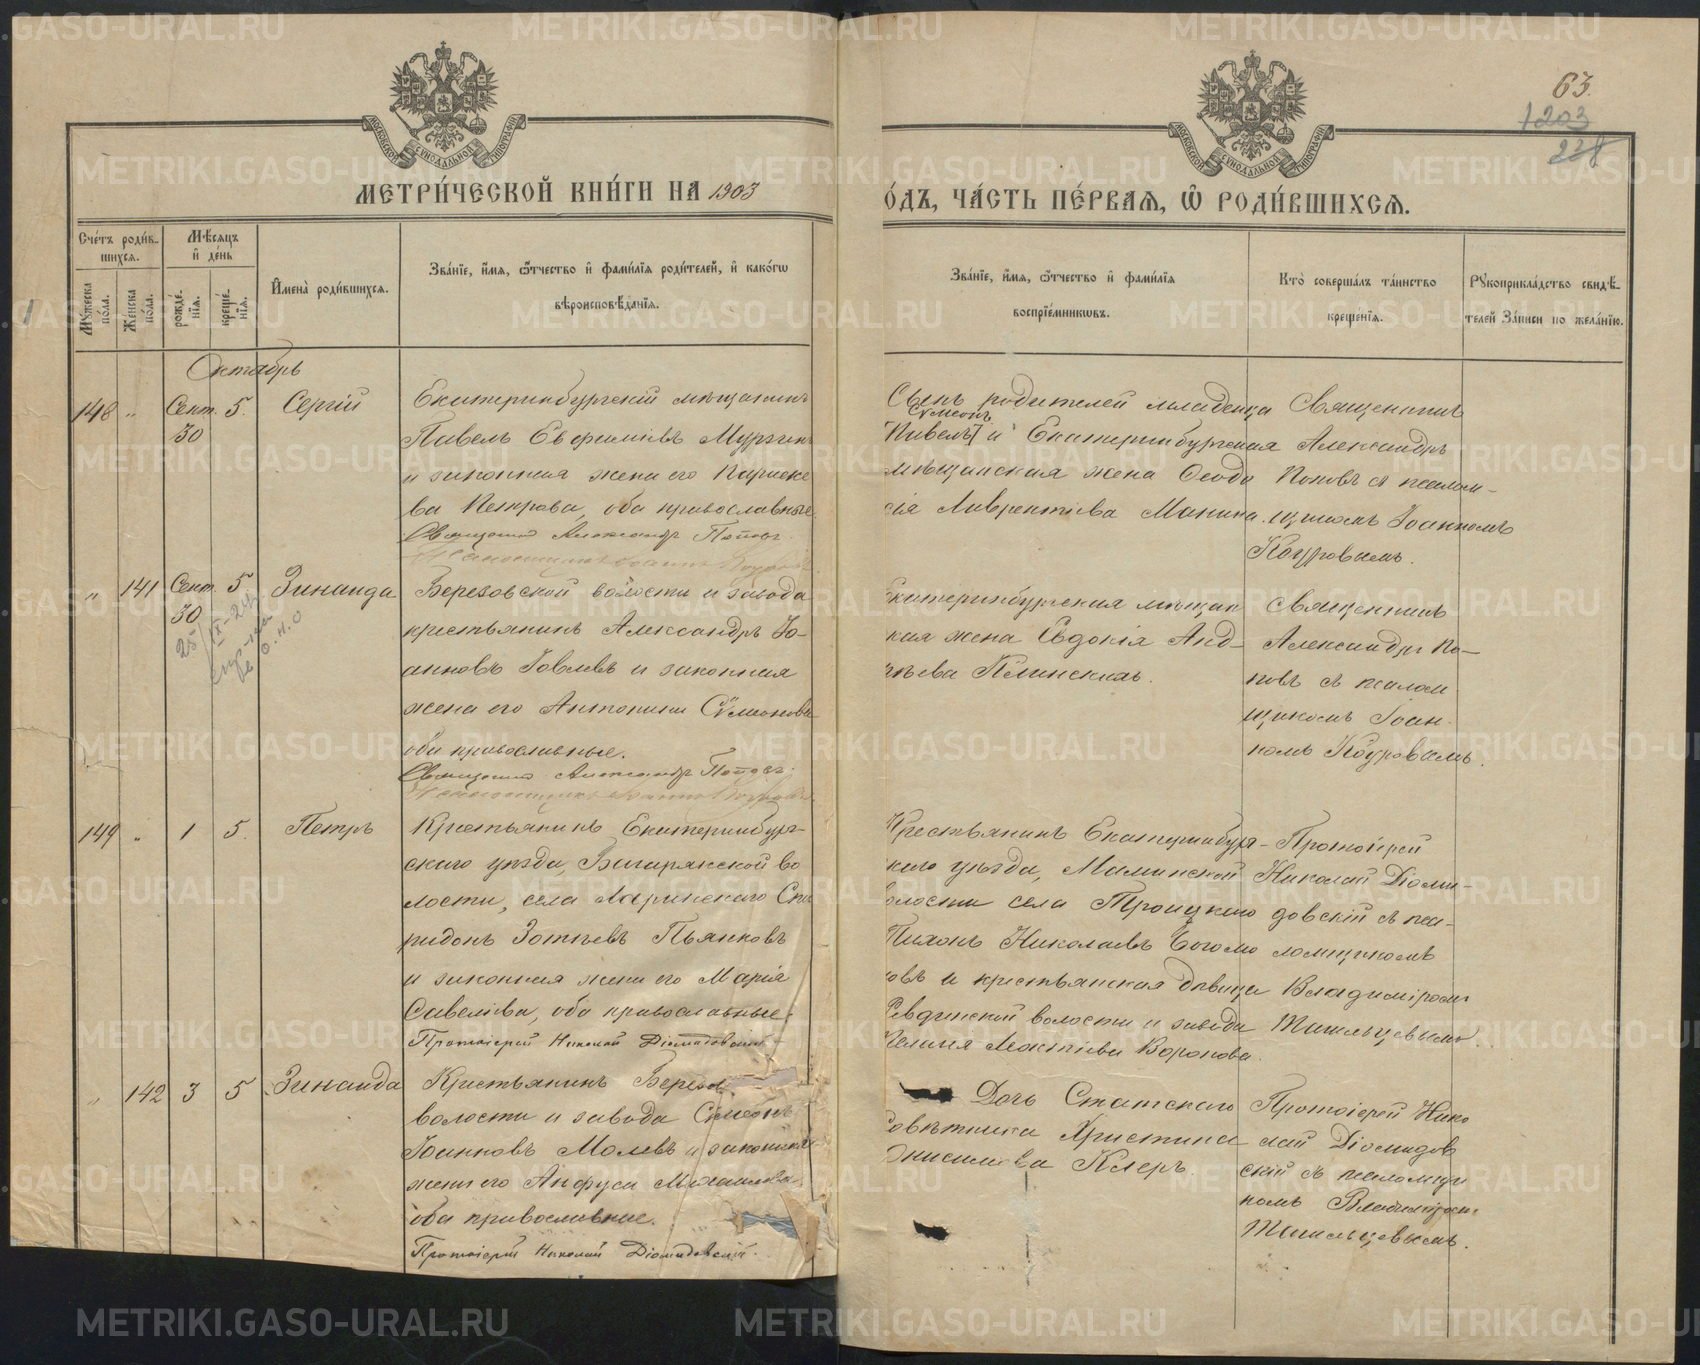 63.
1203
228
МЕТРИ́ЧЕСКОЙ КНИ́ГИ НА 1903
О́ДЪ, ЧА́СТЬ ПЕ́РВАѦ, Ѽ РОДИ́ВШИХСѦ.
МОСКОВСКОЙ СѴНОДАЛЬНОЙ ТИПОГРАФІИ
МОСКОВСКОЙ СѴНОДАЛЬНОЙ ТИПОГРАФІИ
Сче́тъ роди́в-шихсѧ.
Му́жеска по́ла.
Же́нска по́ла.
Мѣ́сѧцъ и҆ де́нь
рожде́-нїѧ.
креще́-нїѧ.
И҆мена̀ роди́вшихсѧ.
Зва́нїе, и҆́мѧ, ѻ҆́тчество и҆ фами́лїѧ роди́телей, и҆ како́гѡ
вѣроисповѣ́данїѧ.
Зва́нїе, и҆́мѧ, ѻ҆́тчество и҆ фами́лїѧ
воспрїе́мникѡвъ.
Кто̀ соверша́лъ та́инство
креще́нїѧ.
Рꙋкоприкла́дство свидѣ́-
телей за́писи по жела́нїю.
Октябрь
148 " Сент. 30 5. Сергій
Екатеринбургскій мѣщанинъ
Павелъ Евфиміевъ Мурзинъ
и законная жена его Параске
ва Петрова, оба православные
Священникъ Александръ Поповъ.
Сынъ родителей младенца
Сѵмеонъ
Павелъ и Екатеринбургская
мѣщанская жена Ѳеодо
сія Лаврентіева Манина.
Священникъ
Александръ
Поповъ съ псалом-
щикомъ Іоанномъ
Коуровымъ.
" 141 Сент. 30 5 Зинаида
Березовской волости и завода
крестьянинъ Александръ Іо-
анновъ Іовлевъ и законная
жена его Антонина Сѵмеонова
оба православные.
Священникъ Александръ Поповъ.
Екатеринбургская мѣщан
кая жена Евдокія Анд-
реева
Священникъ
Александръ По-
повъ съ псалом
щикомъ Іоан-
номъ Коуровымъ.
149 " 1 5. Петръ
Крестьянинъ Екатеринбург-
скаго уѣзда, Багарякской во
лости, села Спи
ридонъ Зотѣевъ Пьянковъ
и законная жена его Марія
Савеліева, оба православные.
Протоіерей Николай Діомидовскій
Крестьянинъ Екатеринбург-
каго уѣзда, Маминской
волости села Троицкаго
Тихонъ Николаевъ Богомо
овъ и крестьянская дѣвица
Ревдинской волости и завода
Воронова.
Протоіерей
Николай Діоми-
довскій съ пса-
ломщикомъ
Владиміромъ
Топильцевымъ.
" 142 3 5 Зинаида
Крестьянинъ Березов.
волости и завода Сѵмеонъ
Іоанновъ Молевъ и законная
жена его Анфуса Михаилова
оба православные.
Протоіерей Николай Діомидовскій.
Дочь Статскаго
Совѣтника Христина
Онисимова Клеръ.
Протоіерей Нико
лай Діомидов
скій съ псаломщи
комъ Владиміром.
Топильцевымъ.
METRIKI.GASO-URAL.RU